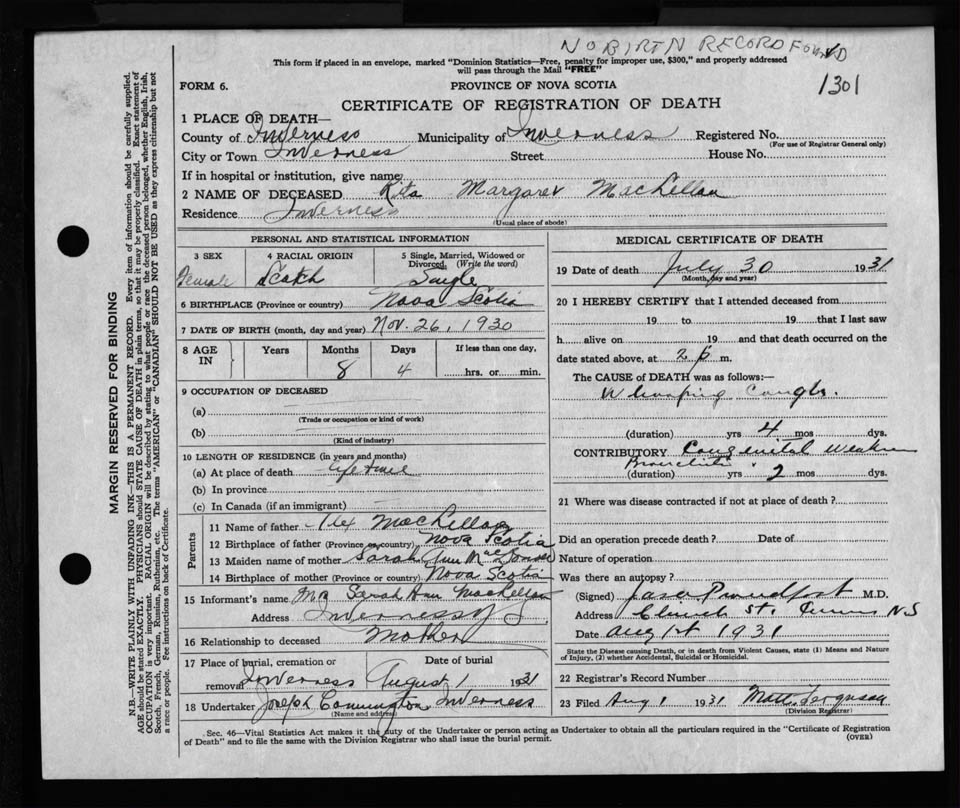 NO BIRTH RECORD FOUND
This form if placed in an envelope, marked "Dominion Statistics—Free, penalty for improper use, $300," and properly addressed
will pass through the Mail "FREE"
1301
FORM 6.
PROVINCE OF NOVA SCOTIA
CERTIFICATE OF REGISTRATION OF DEATH
1 PLACE OF DEATH—
County of Inverness Municipality of Inverness Registered No.
(For use of Registrar General only)
City or Town Inverness Street House No.
If in hospital or institution, give name
2 NAME OF DECEASED Rita Margaret MacLellan
Residence Inverness
(Usual place of abode)
PERSONAL AND STATISTICAL INFORMATION
3 SEX 4 RACIAL ORIGIN 5 Single, Married, Widowed or
Divorced. (Write the word)
Female Scotch Single
6 BIRTHPLACE (Province or country) Nova Scotia
7 DATE OF BIRTH (month, day and year) Nov. 26, 1930
8 AGE IN Years Months Days If less than one day,
8 4 hrs. or min.
9 OCCUPATION OF DECEASED
(a)
(Trade or occupation or kind of work)
(b)
(Kind of industry)
10 LENGTH OF RESIDENCE (in years and months)
(a) At place of death life time
(b) In province
(c) In Canada (if an immigrant)
Parents
11 Name of father Alex MacLellan
12 Birthplace of father (Province or country) Nova Scotia
13 Maiden name of mother Sarah Ann
14 Birthplace of mother (Province or country) Nova Scotia
15 Informant's name Mrs Sarah Ann MacLellan
Address Inverness
16 Relationship to deceased Mother
17 Place of burial, cremation or Date of burial
removal Inverness August 1 1931
18 Undertaker Joseph Inverness
(Name and address)
MEDICAL CERTIFICATE OF DEATH
19 Date of death July 30 1931
(Month, day and year)
20 I HEREBY CERTIFY that I attended deceased from
19 to 19 that I last saw
h alive on 19 and that death occurred on the
date stated above, at 2 p m.
The CAUSE of DEATH was as follows:—
Whooping Cough.
(duration) yrs 4 mos dys.
CONTRIBUTORY Congenital Weakness
Bronchitis
(duration) yrs 2 mos dys.
21 Where was disease contracted if not at place of death?
Did an operation precede death? Date of
Nature of operation
Was there an autopsy?
(Signed) M.D.
Address Church St. N.S
Date Aug 1931
State the Disease causing Death, or in death from Violent Causes, state (1) Means and Nature
of Injury, (2) whether Accidental, Suicidal or Homicidal.
22 Registrar's Record Number
23 Filed Aug 1 1931 Ferguson
(Division Registrar)
Sec. 46—Vital Statistics Act makes it the duty of the Undertaker or person acting as Undertaker to obtain all the particulars required in the "Certificate of Registration
of Death" and to file the same with the Division Registrar who shall issue the burial permit. (OVER)
MARGIN RESERVED FOR BINDING
N.B.—WRITE PLAINLY WITH UNFADING INK—THIS IS A PERMANENT RECORD. Every item of information should be carefully supplied.
AGE should be stated EXACTLY. PHYSICIANS should STATE CAUSE OF DEATH in plain terms, so that it may be properly classified. Exact statement of
OCCUPATION is very important. RACIAL ORIGIN will be described by stating to what people or race the deceased person belonged, whether English, Irish,
Scotch, French, German, Russian, Ruthenian, etc. The terms "AMERICAN" or "CANADIAN" SHOULD NOT BE USED as they express citizenship but not
a race or people. See instructions on back of Certificate.